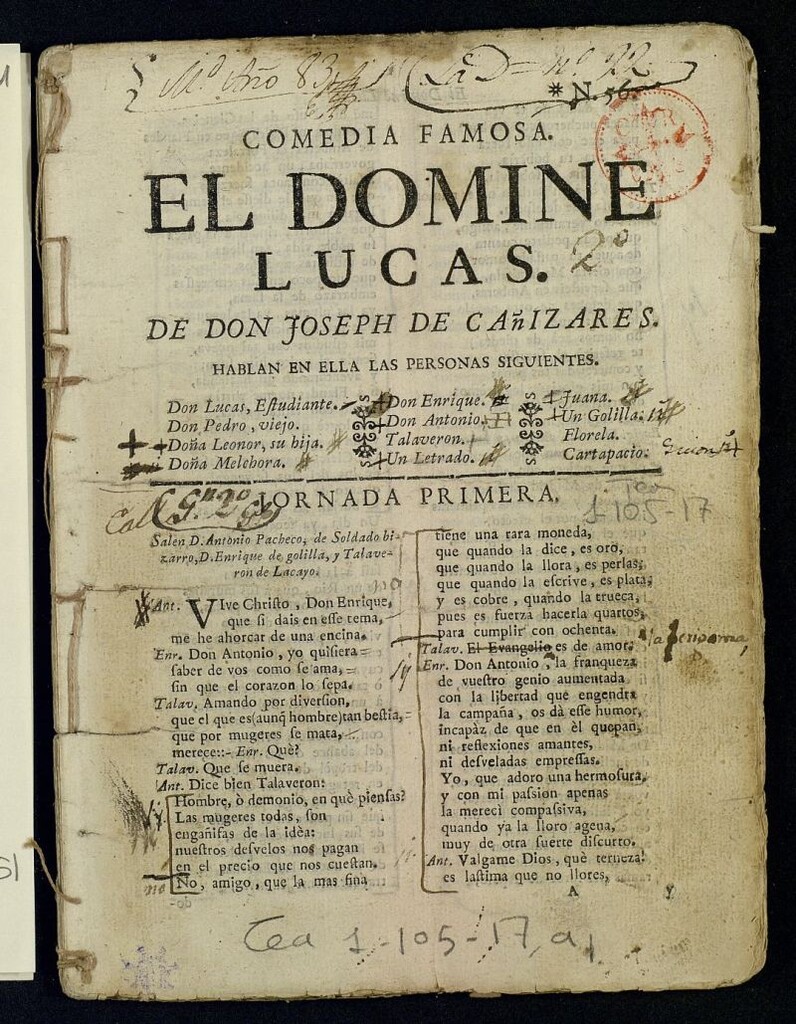 Mᵈ Año 83
Nº 22
* N. 56.
COMEDIA FAMOSA.
EL DOMINE
LUCAS. 2º
DE DON JOSEPH DE CAñIZARES.
HABLAN EN ELLA LAS PERSONAS SIGUIENTES.
Don Lucas, Eſtudiante.
Don Pedro, viejo.
Doña Leonor, su hija.
Doña Melchora.
Don Enrique.
Don Antonio.
Talaveron.
Un Letrado.
Juana.
Un Golilla.
Florela.
Cartapacio.
JORNADA PRIMERA.
1-105-17
Salen D. Antonio Pacheco, de Soldado bi-
zarro, D. Enrique de golilla, y Talave-
ron de Lacayo.
Ant. VIve Chriſto, Don Enrique,
que ſi dais en eſſe tema,
me he ahorcar de una encina.
Enr. Don Antonio, yo quiſiera
ſaber de vos como ſe ama,
ſin que el corazon lo ſepa.
Talav. Amando por diverſion,
que el que es (aunq̃ hombre) tan beſtia,
que por mugeres ſe mata,
merece::- Enr. Què?
Talav. Que ſe muera.
Ant. Dice bien Talaveron:
Hombre, ò demonio, en què pienſas?
Las mugeres todas, ſon
engañifas de la idèa:
nueſtros deſvelos nos pagan
en el precio que nos cueſtan.
no
No, amigo, que la mas fina
tiene una rara moneda,
que quando la dice, es oro,
que quando la llora, es perlas,
que quando la eſcrive, es plata,
y es cobre, quando la trueca,
pues es fuerza hacerla quartos,
para cumplir con ochenta.
Talav. El Evangelio es de amor.
Enr. Don Antonio, la franqueza
de vueſtro genio aumentada
con la libertad que engendra
la campaña, os dà eſſe humor,
incapàz de que en èl quepan,
ni reflexiones amantes,
ni deſveladas empreſſas.
Yo, que adoro una hermoſura,
y con mi paſsion apenas
la merecì compaſsiva,
quando ya la lloro agena,
muy de otra ſuerte diſcurro.
Ant. Valgame Dios, què terneza!
es laſtima que no llores,
A Y
Tea 1-105-17, a1